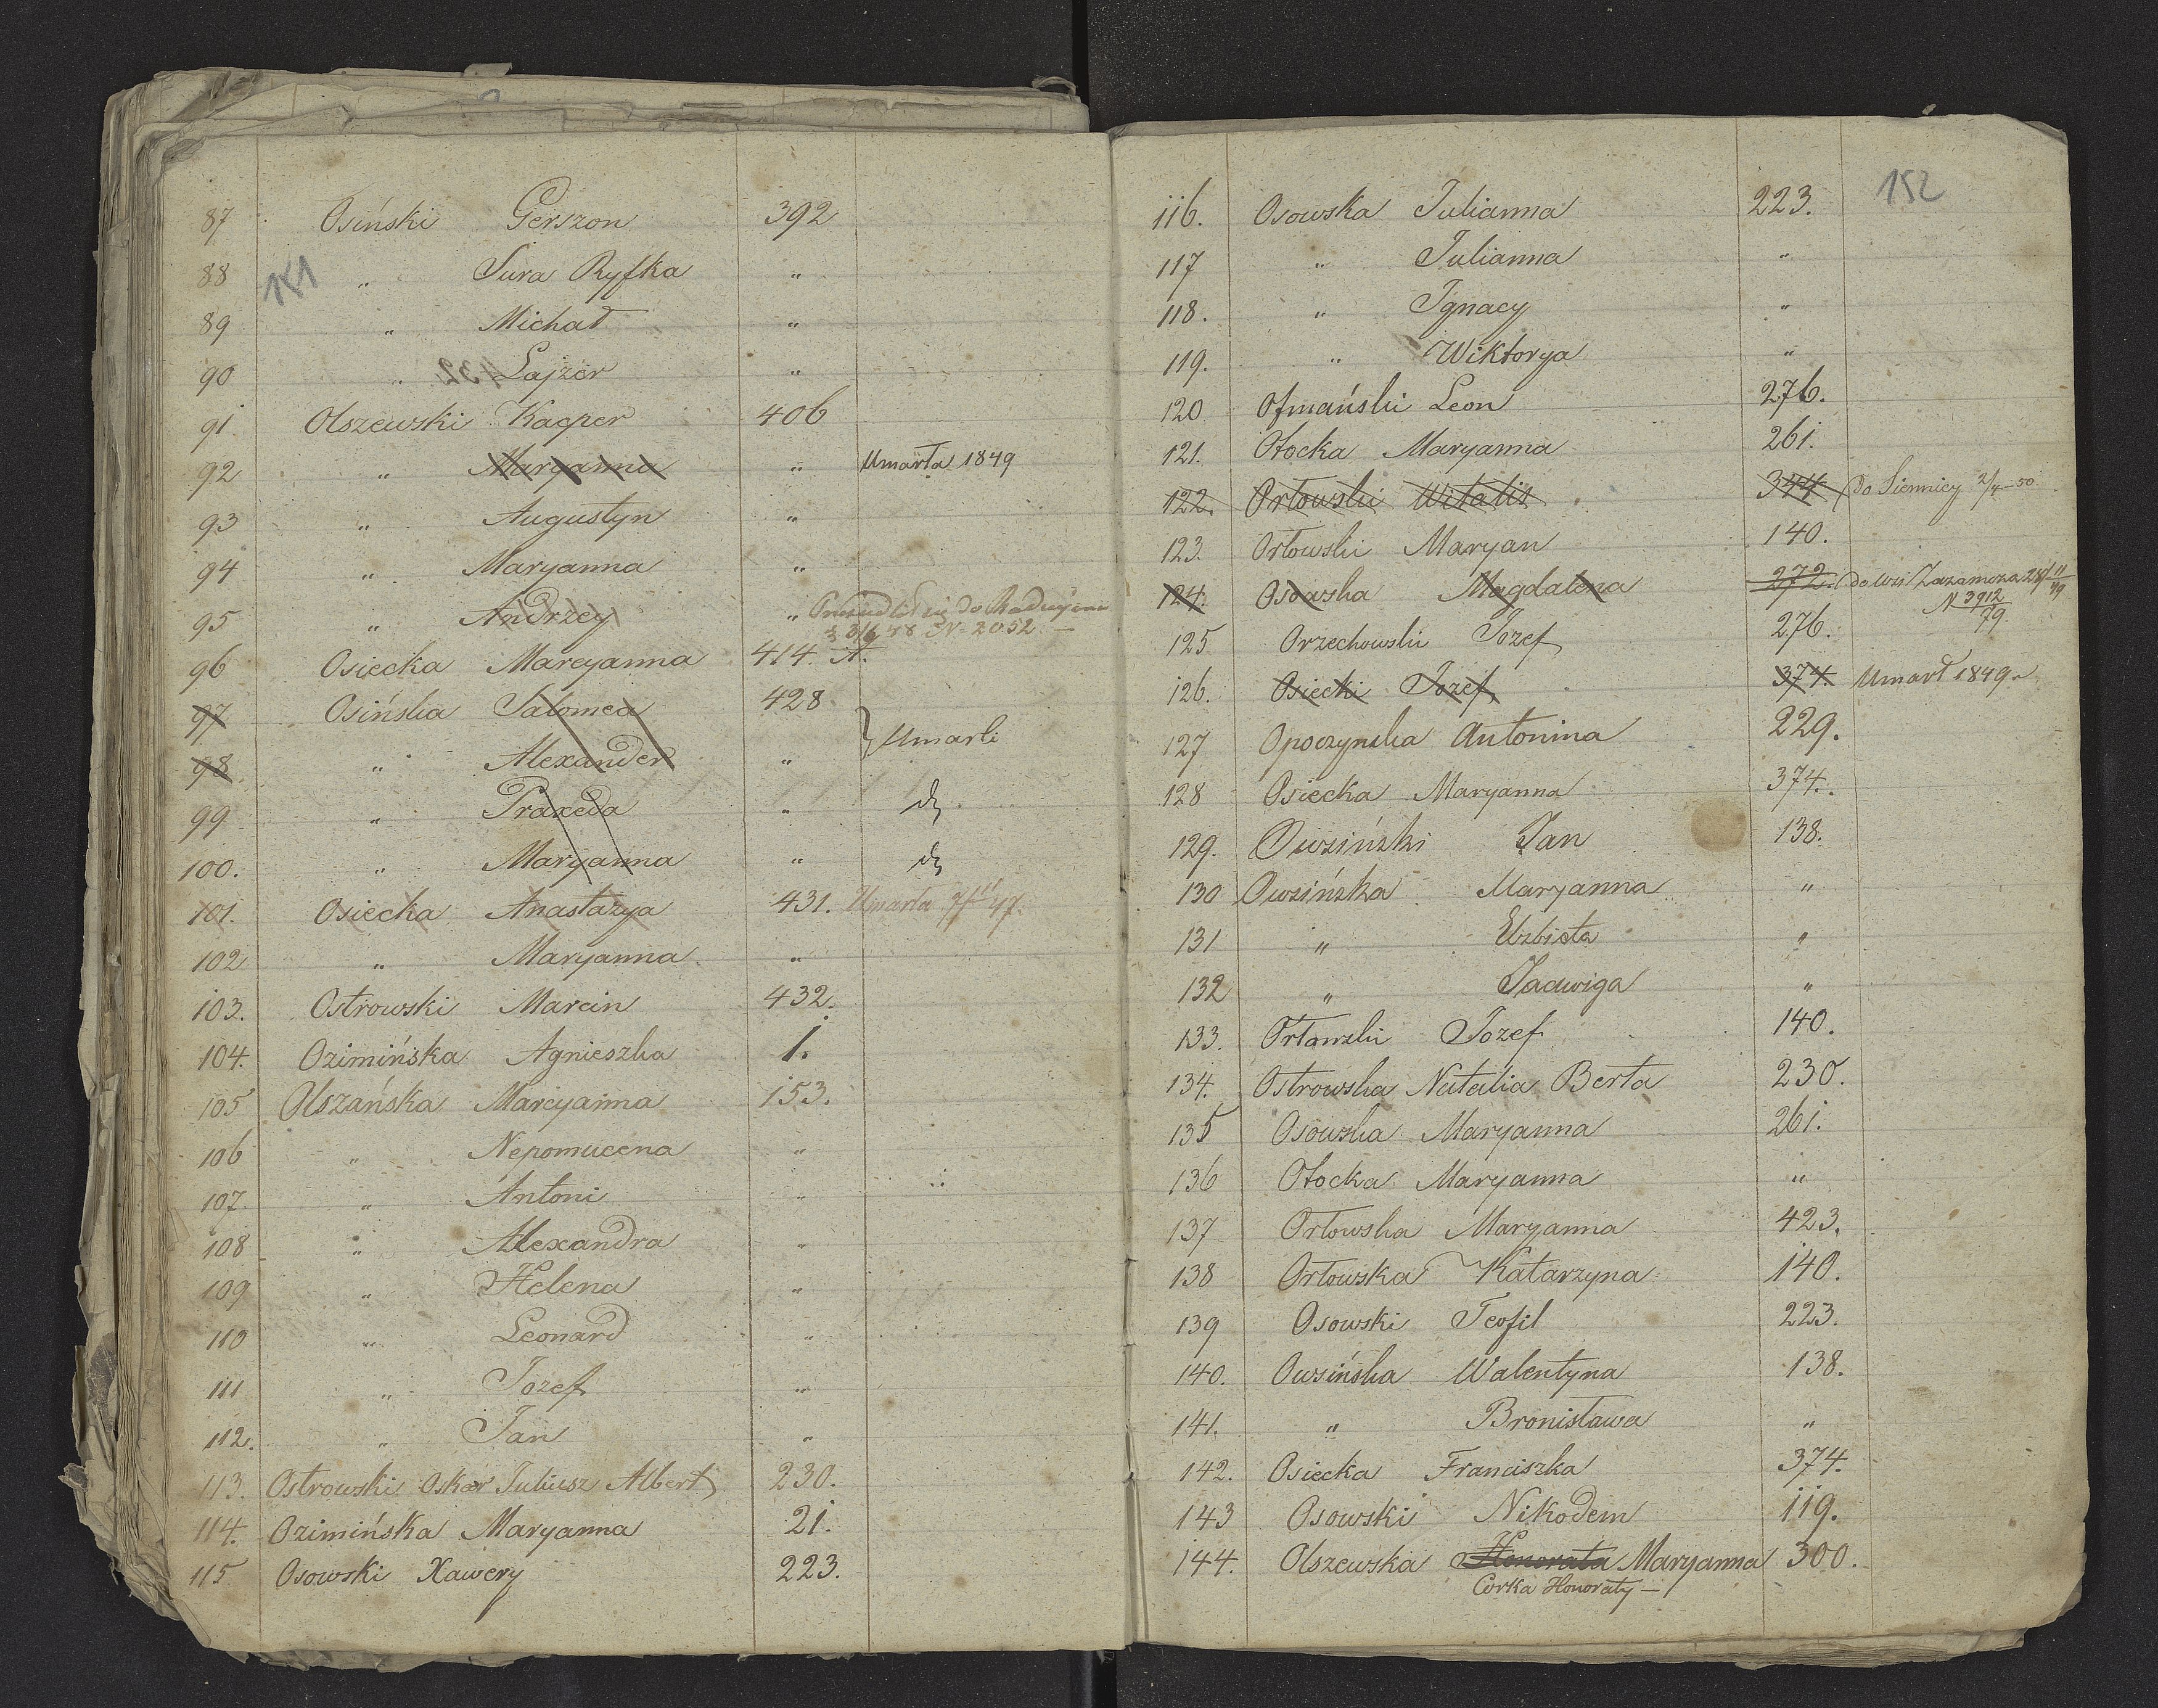 87 Osiński Gerszon 392
151
88 „ Sura Ryfka „
89 „ Michał „
90 „ Lajzer „
91 Olszewski Kacper 406
92 „ Maryanna „ Umarła 1849
93 „ Augustyn „
94 „ Maryanna „
95 „ Andrzey „ do
N. 2052. —
96 Osiecka Marcyanna 414. A.
97 Osińska Salomea 428
98 „ Alexander „ } Umarli
99 „ Praxeda „
100. „ Maryanna „
101. Osiecka Anastazya 431. Umarła
102 „ Maryanna „
103. Ostrowski Marcin 432.
104. Ozimińska Agnieszka 1.
105 Olszańska Marcyanna 153.
106 „ Nepomucena „
107. „ Antoni „
108 „ Alexandra „
109 „ Helena „
110 „ Leonard „
111 „ Jozef „
112. „ Jan „
113. Ostrowski Oskar Juliusz Albert 230.
114. Ozimińska Maryanna 21.
115. Osowski Xawery 223.
152
116. Osowska Julianna 223.
117 „ Julianna „
118. „ Ignacy „
119. „ Wiktorya „
120 Ofmański Leon 276.
121. Otocka Maryanna 261.
122. Orłowski Witalis 344. do Siennicy 2/4–50
123. Orłowski Maryan 140.
124. Osowska Magdalena 272. do wsi
N 3912
79.
125 Orzechowski Jozef 276.
126. Osiecki Jozef 374. Umarł 1849.
127 Opoczynska Antonina 229.
128 Osiecka Maryanna 374.
129. Owsiński Jan 138.
130 Owsińska Maryanna „
131 „ Elzbieta „
132 „ Jadwiga „
133. Orłowski Jozef 140.
134. Ostrowska Natalia Berta 230.
135 Osowska Maryanna 261.
136 Otocka Maryanna „
137 Orłowska Maryanna 423.
138 Orłowska Katarzyna 140.
139 Osowski Teofil 223.
140. Owsińska Walentyna 138.
141. „ Bronisława „
142. Osiecka Franciszka 374.
143 Osowski Nikodem 119.
144. Olszewska Honorata Maryanna 300.
Corka Honoraty —